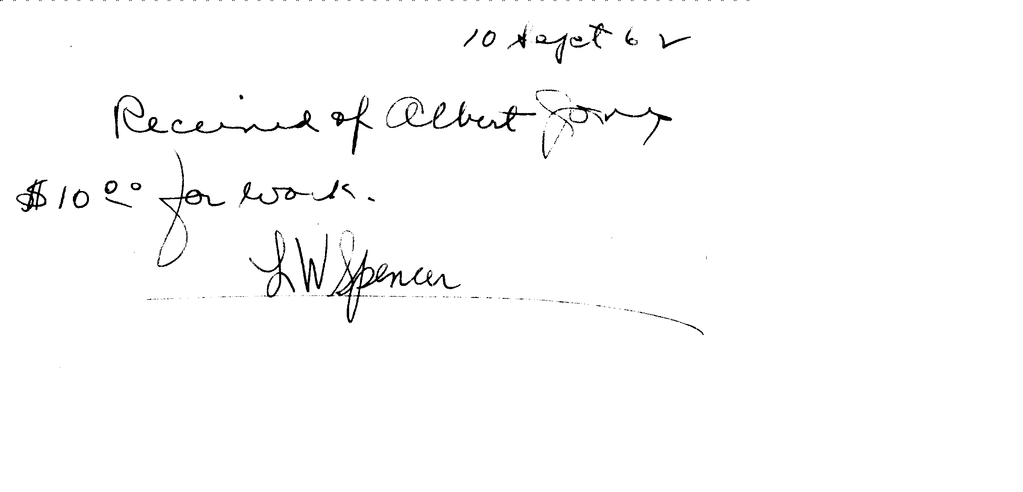 10 Sept 62
Received of Albert Jones
$10.00 for work.
L W Spencer